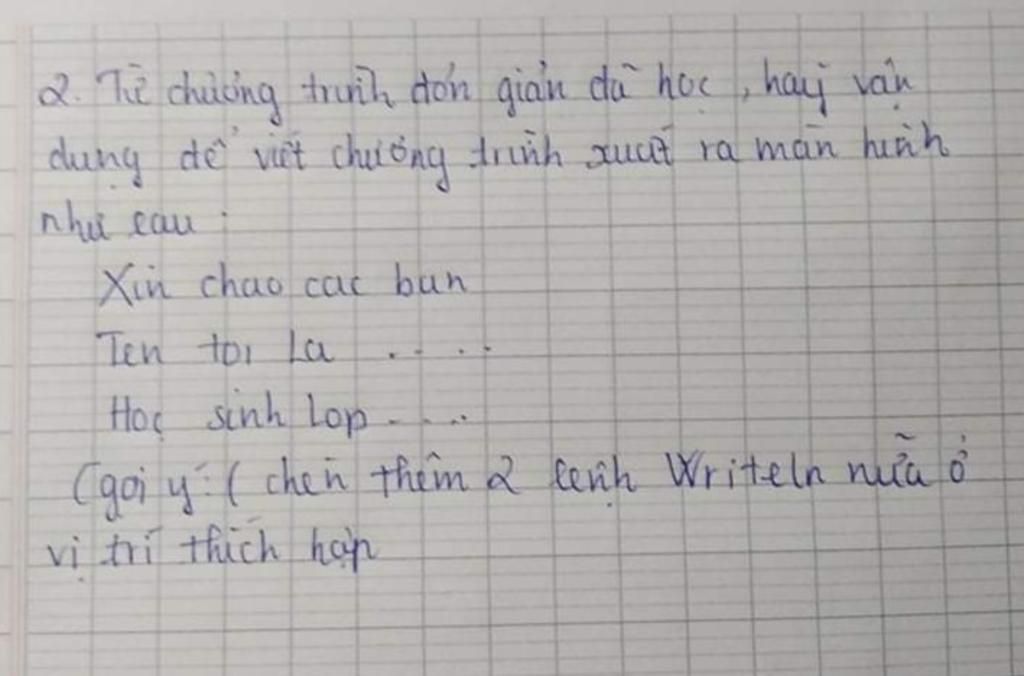 2. Từ chương trình đơn giản đã học, hãy vận
dụng để viết chương trình xuất ra màn hình
như sau:
Xin chao cac ban
Ten toi La .....
Hoc sinh Lop.....
(gợi ý: ( chèn thêm 2 lệnh Writeln nữa ở
vị trí thích hợp